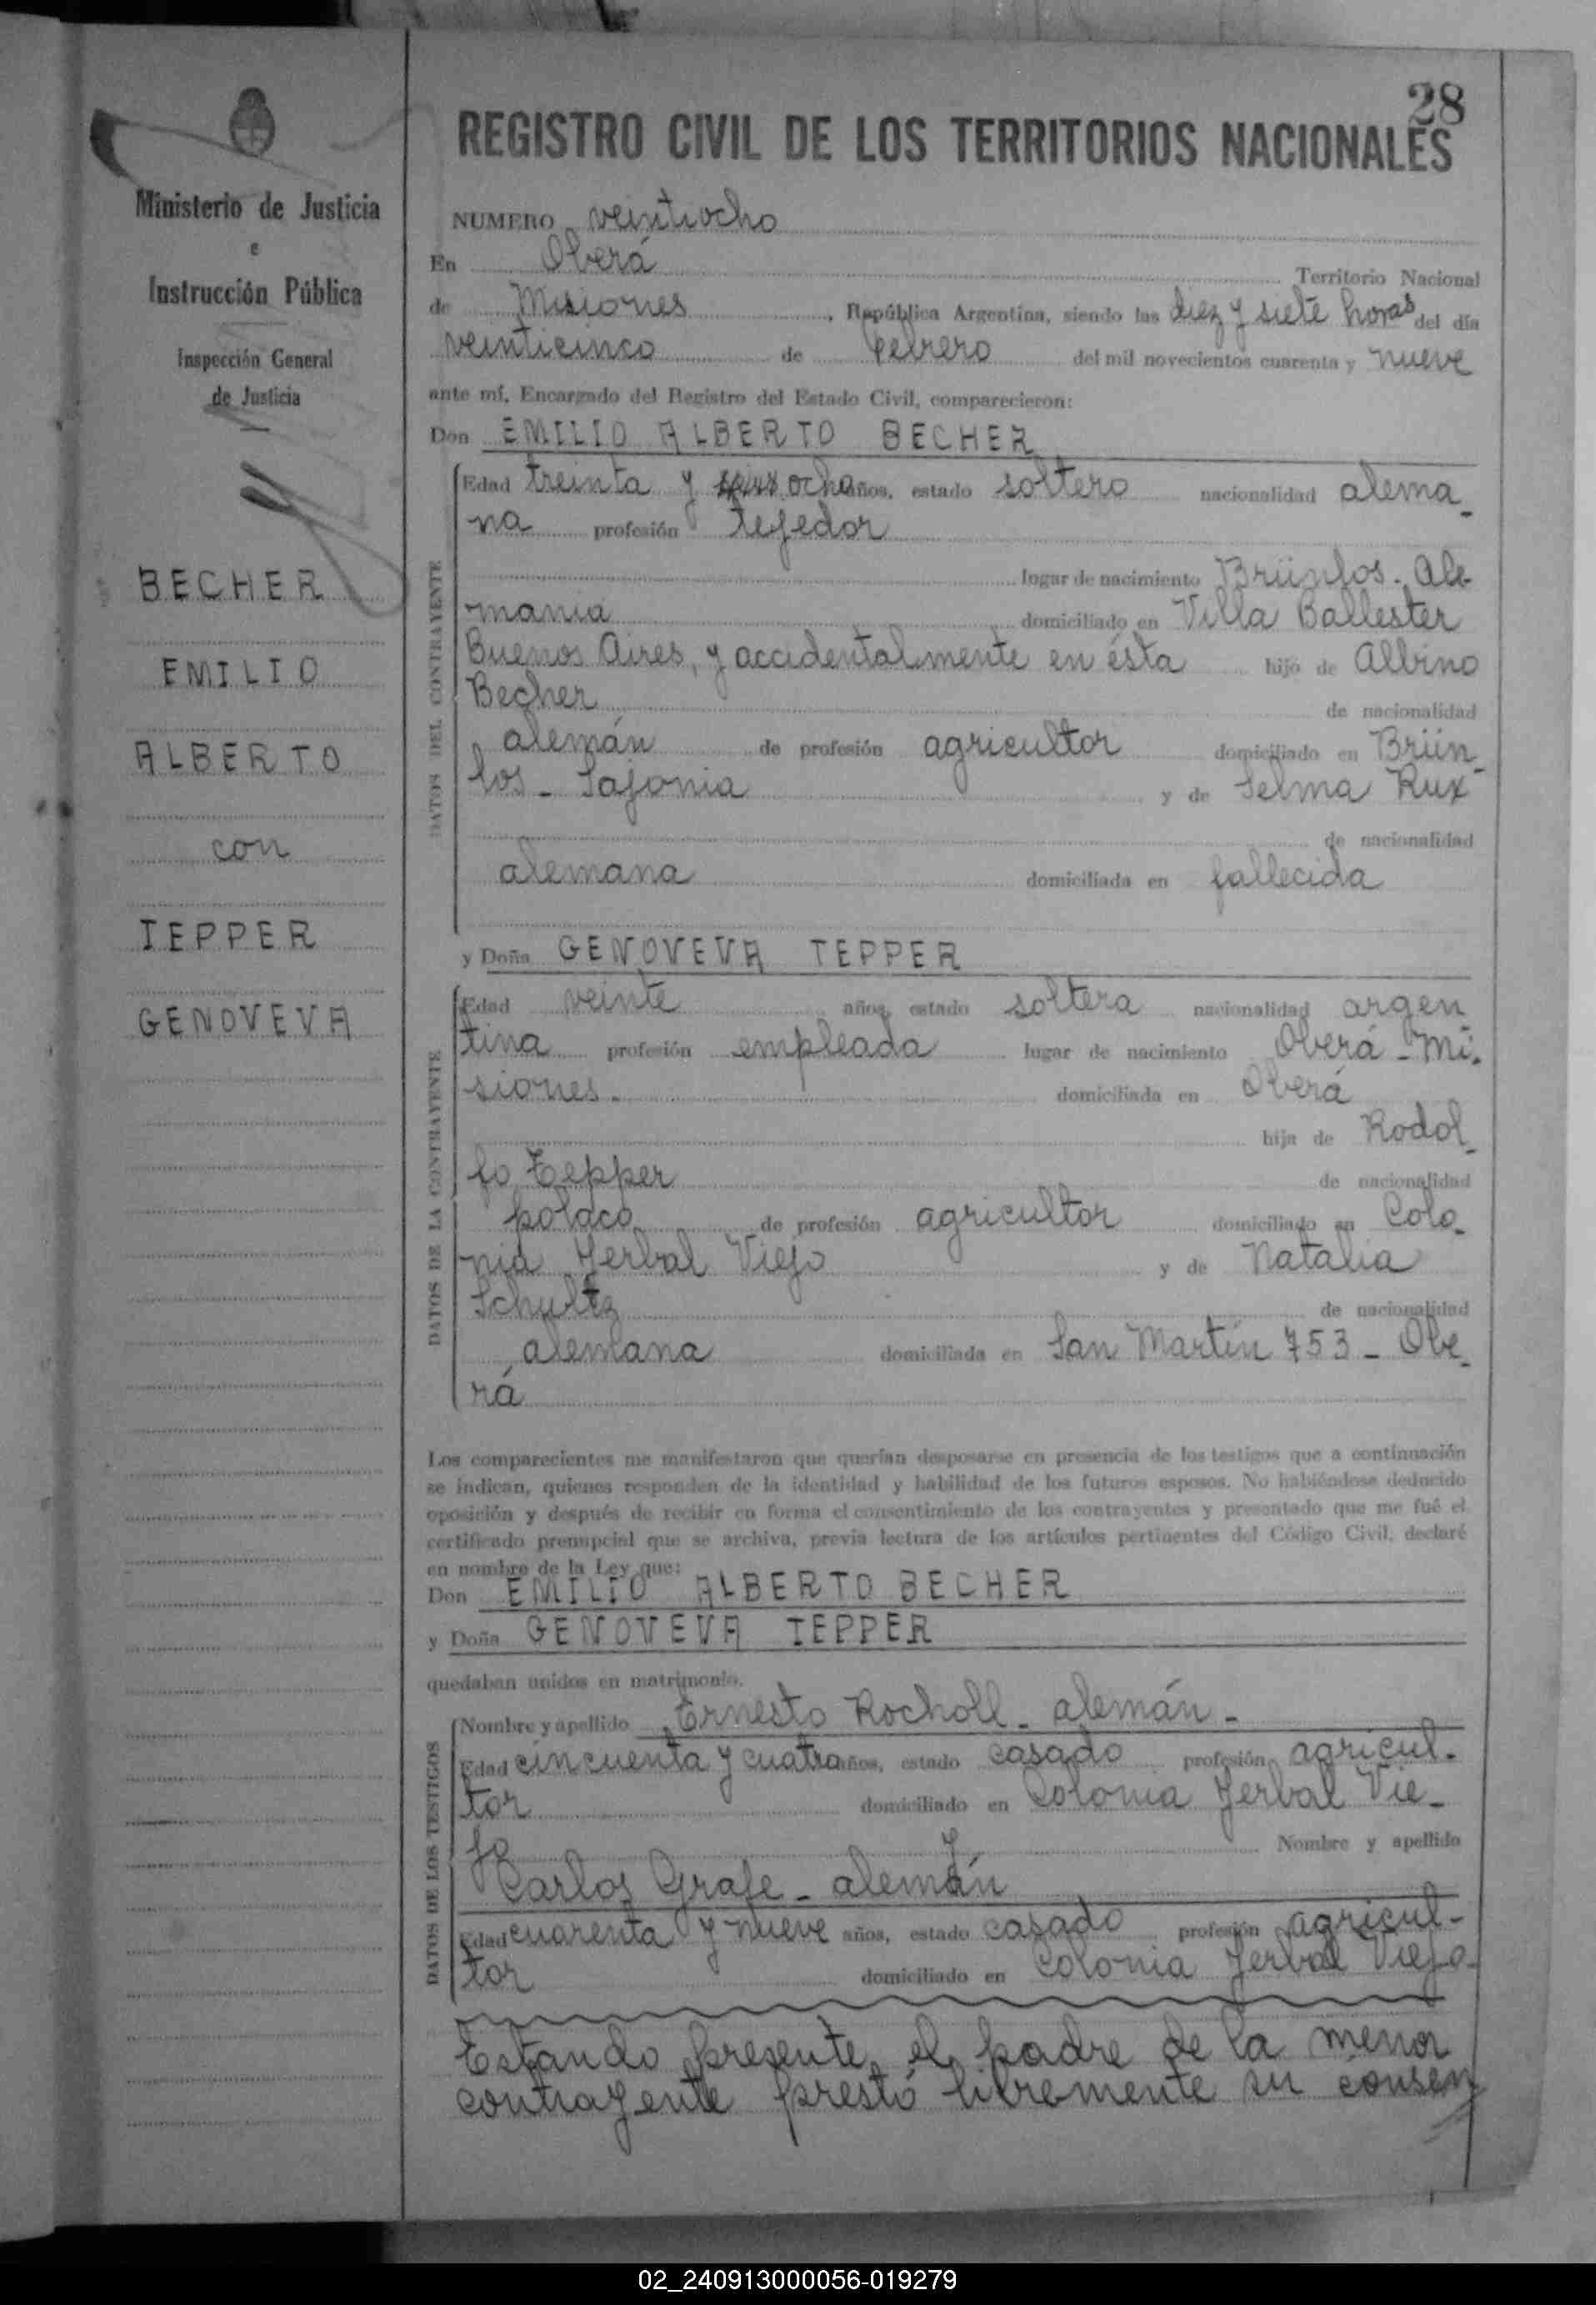 28
REGISTRO CIVIL DE LOS TERRITORIOS NACIONALES
Ministerio de Justicia
e
Instrucción Pública
Inspección General
de Justicia
BECHER
EMILIO
ALBERTO
con
TEPPER
GENOVEVA
NUMERO veintiocho
En Oberá Territorio Nacional
de Misiones, República Argentina, siendo las diez y siete horas del día
veinticinco de febrero del mil novecientos cuarenta y nueve
ante mí, Encargado del Registro del Estado Civil, comparecieron:
Don EMILIO ALBERTO BECHER
DATOS DEL CONTRAYENTE
Edad treinta y ocho años, estado soltero nacionalidad alema-
na profesión tejedor
lugar de nacimiento Brünlos - Ale-
mania domiciliado en Villa Ballester
Buenos Aires, y accidentalmente en ésta hijo de Albino
Becher de nacionalidad
alemán de profesión agricultor domiciliado en Brün-
los - Sajonia y de Selma Rux
de nacionalidad
alemana domiciliada en fallecida
y Doña GENOVEVA TEPPER
DATOS DE LA CONTRAYENTE
Edad veinte años, estado soltera nacionalidad argen
tina profesión empleada lugar de nacimiento Oberá - Mi-
siones. domiciliada en Oberá
hija de Rodol-
fo Tepper de nacionalidad
polaco de profesión agricultor domiciliado en Colo-
nia Yerbal Viejo y de Natalia
Schultz de nacionalidad
alemana domiciliada en San Martín 753 - Obe-
rá
Los comparecientes me manifestaron que querían desposarse en presencia de los testigos que a continuación
se indican, quienes responden de la identidad y habilidad de los futuros esposos. No habiéndose deducido
oposición y después de recibir en forma el consentimiento de los contrayentes y presentado que me fué el
certificado prenupcial que se archiva, previa lectura de los artículos pertinentes del Código Civil, declaré
en nombre de la Ley que:
Don EMILIO ALBERTO BECHER
y Doña GENOVEVA TEPPER
quedaban unidos en matrimonio.
DATOS DE LOS TESTIGOS
Nombre y apellido Ernesto Rocholl - alemán -
Edad cincuenta y cuatro años, estado casado profesión agricul-
tor domiciliado en Colonia Yerbal Vie-
jo Nombre y apellido
Carlos Grafe - alemán
Edad cuarenta y nueve años, estado casado profesión agricul-
tor domiciliado en Colonia Yerbal Viejo-
Estando presente el padre de la menor
contrayente prestó libremente su consen
02_240913000056-019279